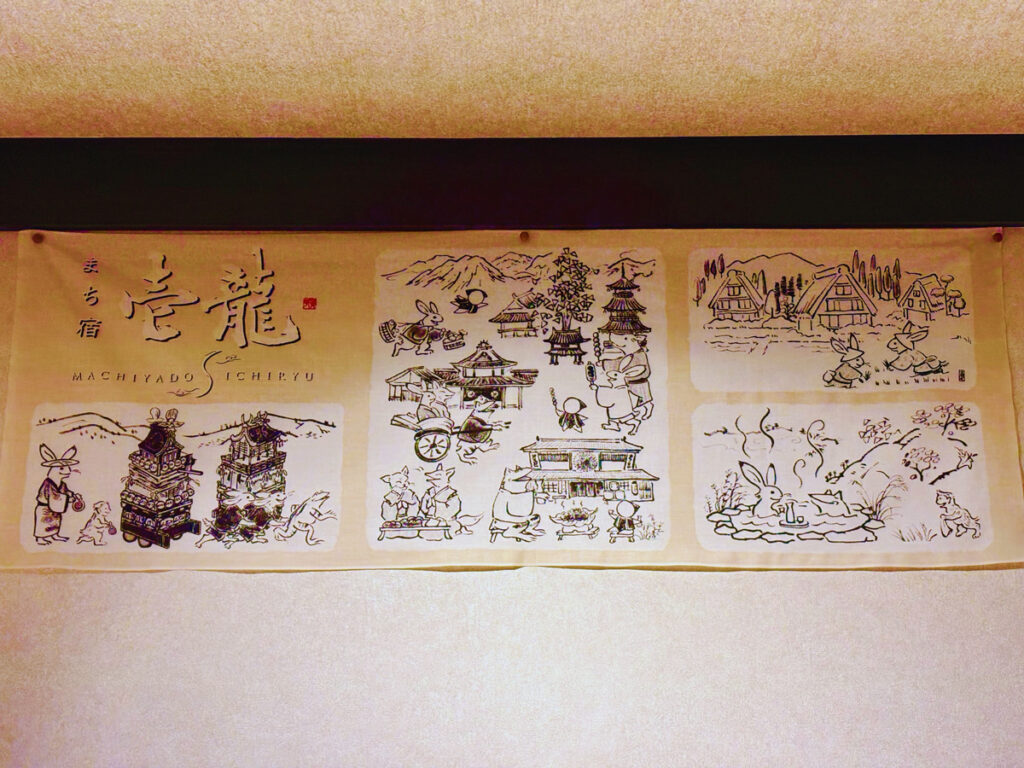 まち宿
壱龍
MACHIYADO ICHIRYU